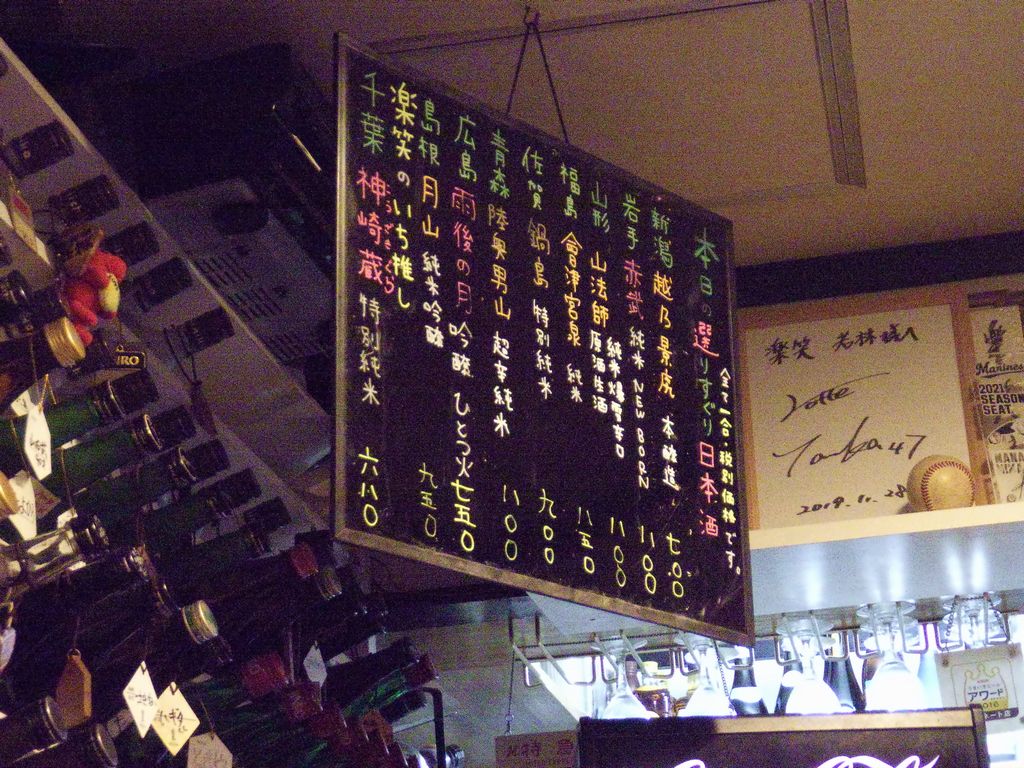 本日の選りすぐり日本酒
全て一合・税別価格です。
新潟 越乃景虎 本醸造 七〇〇
岩手 赤武 純米 NEW BORN 一一〇〇
山形 山法師 純米爆雪辛口 原酒生酒 一一〇〇
福島 會津宮泉 純米 八五〇
佐賀 鍋島 特別純米 九〇〇
青森 陸奥男山 超辛純米 八〇〇
広島 雨後の月 吟醸 ひとつ火 七五〇
島根 月山 純米吟醸 九五〇
楽笑のいち推し
千葉 神崎蔵 特別純米 六八〇
こうざきぐら
楽笑 若林様へ
Lotte
47
2019.11.28
Marines
2021
SEASON
SEAT
アワード